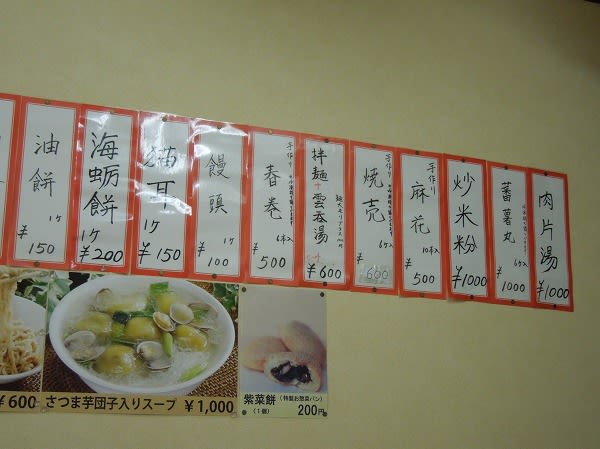 油餅
1ケ
¥150
海蛎餅
1ケ
¥200
猫耳
1ケ
¥150
饅頭
1ケ
¥100
手作り
春巻
6本入
¥500
拌麺+雲吞湯
¥600
手作り
焼売
6ケ入
¥600
手作り
麻花
10本入
¥500
炒米粉
¥1000
蕃薯丸
6ケ入
¥1000
肉片湯
¥1000
¥600
さつま芋団子入りスープ ¥1,000
紫菜餅(特製お惣菜パン)
(1個) 200円